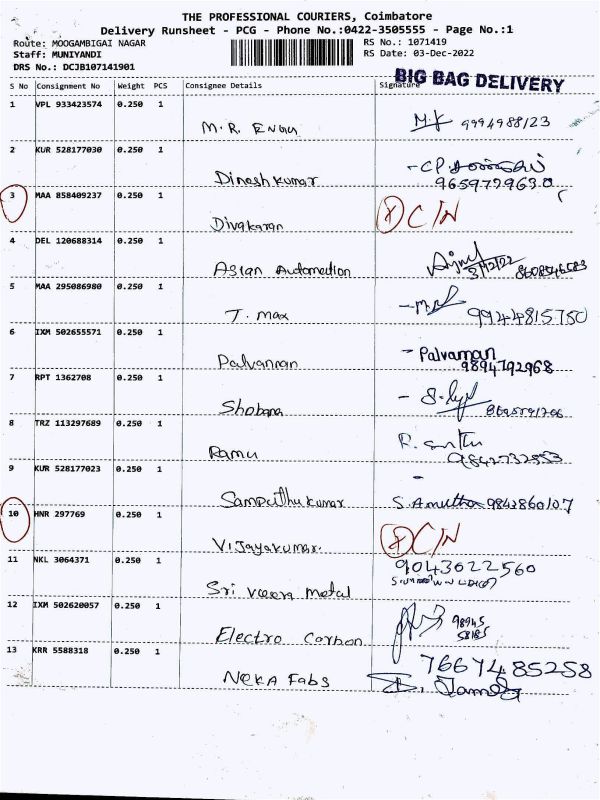 THE PROFESSIONAL COURIERS, Coimbatore
Delivery Runsheet - PCG - Phone No.:0422-3505555 - Page No.:1
Route: MOOGAMBIGAI NAGAR RS No.: 1071419
Staff: MUNIYANDI RS Date: 03-Dec-2022
DRS No.: DCJB107141901
BIG BAG DELIVERY
S No Consignment No Weight PCS Consignee Details Signature
1 VPL 933423574 0.250 1
M.R. M.K 9994988123
2 KUR 528177030 0.250 1
Dinesh kumar CP.
9659729630
3 MAA 858409237 0.250 1
Divakaran C/N
4 DEL 120688314 0.250 1
Asian Automation 3/12/22 8608546583
5 MAA 295086980 0.250 1
T. max 9944815750
6 IXM 502655571 0.250 1
Palvannan - Palvannan
9894792968
7 RPT 1362708 0.250 1
Shobana
8 TRZ 113297689 0.250 1
Ramu
9842732553
9 KUR 528177023 0.250 1
Sampathu kumar S.Amutha 9842860107
10 HNR 297769 0.250 1
Vijayakumar C/N
11 NKL 3064371 0.250 1 9043622560
Sri Veera metal
12 IXM 502620057 0.250 1
Electro Carbon 98945
58185
13 KRR 5588318 0.250 1 7667485258
Neka Fabs